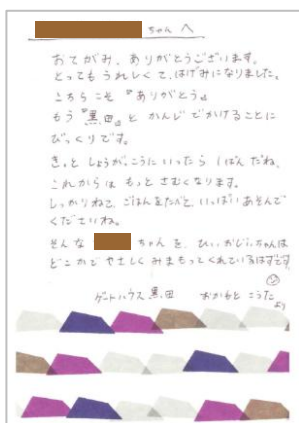 ちゃんへ
おてがみ、ありがとうございます。
とってもうれしくて、はげみになりました。
こちらこそ『ありがとう』
もう『黒田』とかんじでかけることに
びっくりです。
きっとしょうがっこうにいったら1ばんだね。
これからはもっとさむくなります。
しっかりねて、ごはんをたべて、いっぱいあそんで
くださいね。
そんな ちゃんを、ひいおじいちゃんは
どこかでやさしくみまもってくれているはずです
ゲートハウス黒田 おかもと こうた
より